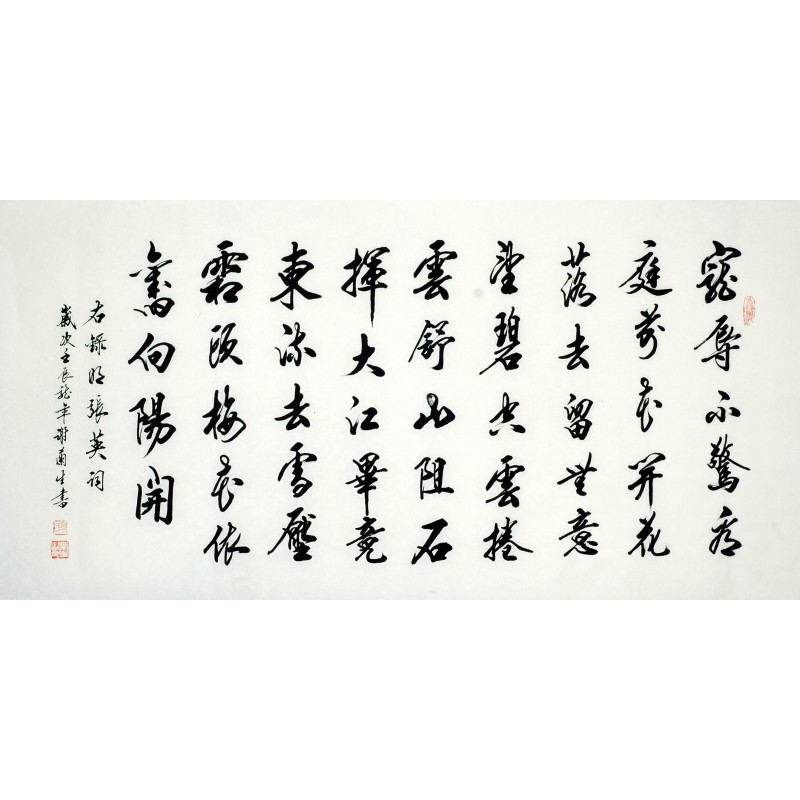 寵辱不驚看
庭前花開花
落去留無意
望碧空雲捲
雲舒山阻石
揮大江畢竟
東流去雪壓
霜欺梅花依
舊向陽開
右錄明張英詞
歲次壬辰龍年謝生書